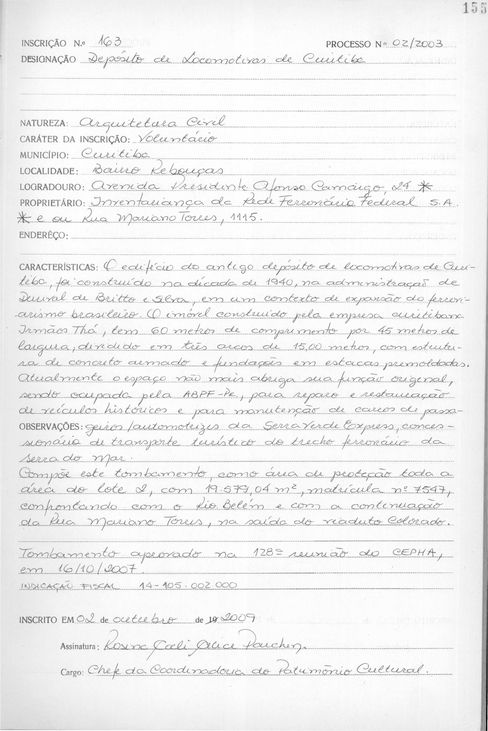 155
INSCRIÇÃO N.º 163 PROCESSO Nº 02/2003
DESIGNAÇÃO Depósito de Locomotivas de Curitiba
NATUREZA: Arquitetura Civil
CARÁTER DA INSCRIÇÃO: Voluntário
MUNICÍPIO: Curitiba
LOCALIDADE: Bairro Rebouças
LOGRADOURO: Avenida Presidente Afonso Camargo, 24 *
PROPRIETÁRIO: Inventariança da Rede Ferroviária Federal S.A.
* e ou Rua Mariano Torres, 1115.
ENDERÊÇO:
CARACTERÍSTICAS: O edifício do antigo depósito de locomotivas de Curi-
tiba, foi construído na década de 1940, na administração de
Durival de Britto e Silva, em um contexto de expansão do ferrovi-
arismo brasileiro. O imóvel construído pela empresa curitibana
Irmãos Thá, tem 60 metros de comprimento por 45 metros de
largura, dividido em três arcos de 15,00 metros, com estrutu-
ra de concreto armado e fundações em estacas premoldadas.
Atualmente o espaço não mais abriga sua função original,
sendo ocupada pela ABPF-Pr, para reparo e restauração
de veículos históricos e para manutenção de carros de passa-
OBSERVAÇÕES: geiros/automotrizes da Serra Verde Express, conces-
sionária de transporte turístico do trecho ferroviário da
serra do mar.
Compõe este tombamento, como área de proteção toda a
área do lote 2, com 19.579,04 m², matrícula nº 7547,
confrontando com o Rio Belém e com a continuação
da Rua Mariano Torres, na saída do viaduto Colorado.
Tombamento aprovado na 128ª reunião do CEPHA,
em 16/10/2007.
INDICAÇÃO FISCAL 14-105.002.000
INSCRITO EM 02 de outubro de 2009
Assinatura: Rosina
Cargo: Chefe da Coordenadoria do Patrimônio Cultural.